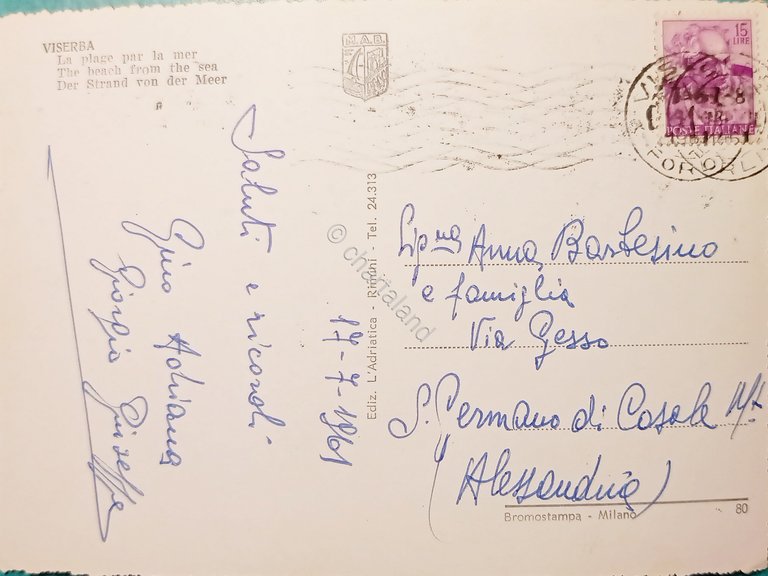 VISERBA
La plage par la mer
The beach from the sea
Der Strand von der Meer
M.A.B.
15
LIRE
POSTE ITALIANE
Saluti e ricordi
Gino Adriana
Giorgio Giuseppe
17-7-1961
Ediz. L'Adriatica - Rimini - Tel. 24.313
© chartaland
Anna Bartesino
e famiglia
Via Gesso
S. Germano di Casale M/to
(Alessandria)
Bromostampa - Milano
80